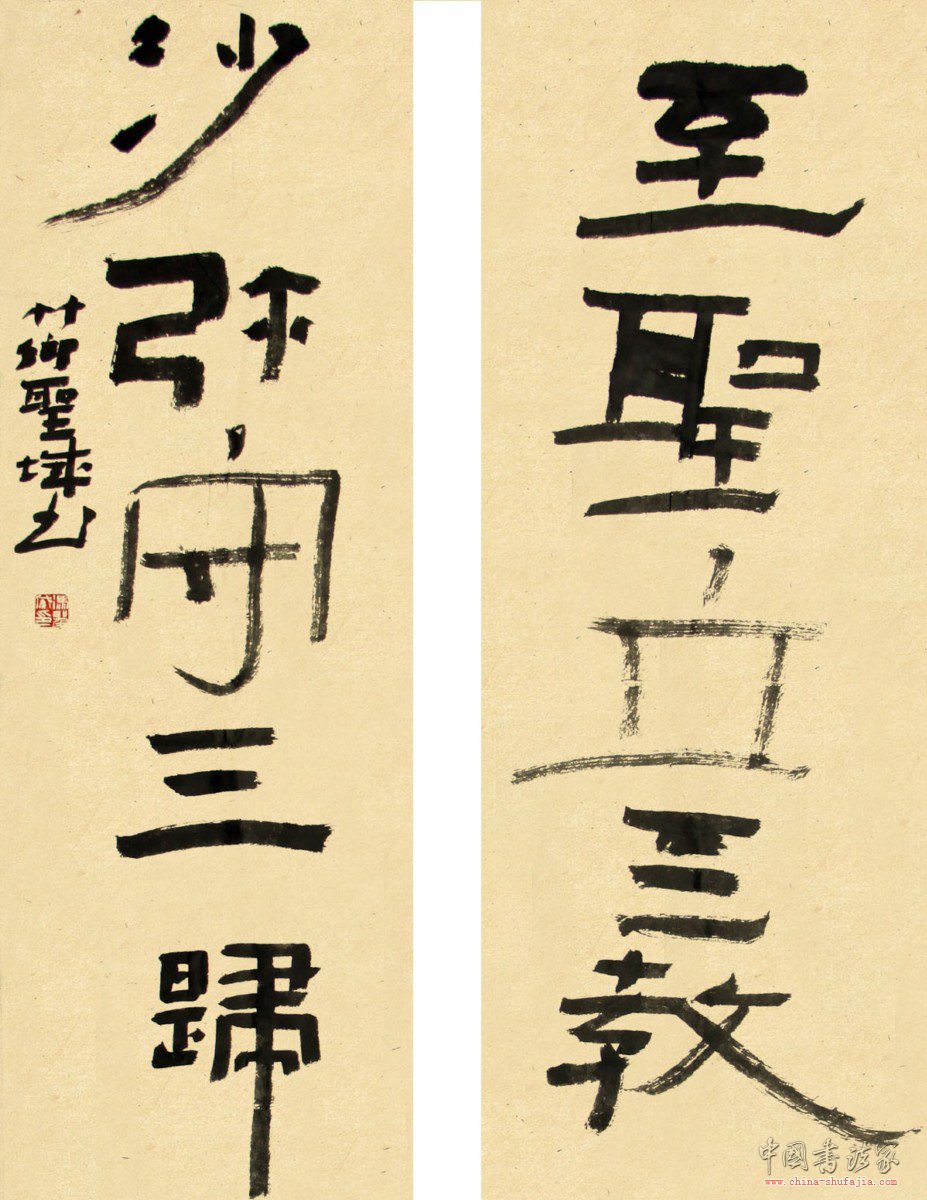 至聖立三教
沙弥守三歸
聖书
中國書法家
www.china-shufajia.com